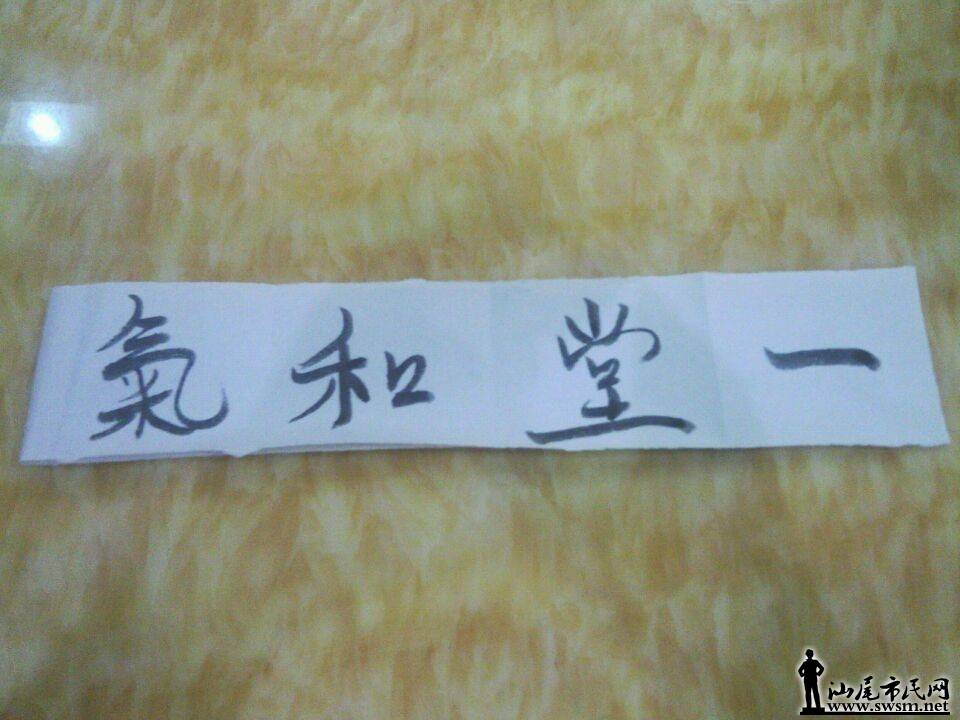 一堂和氣
汕尾市民网
www.swsm.net